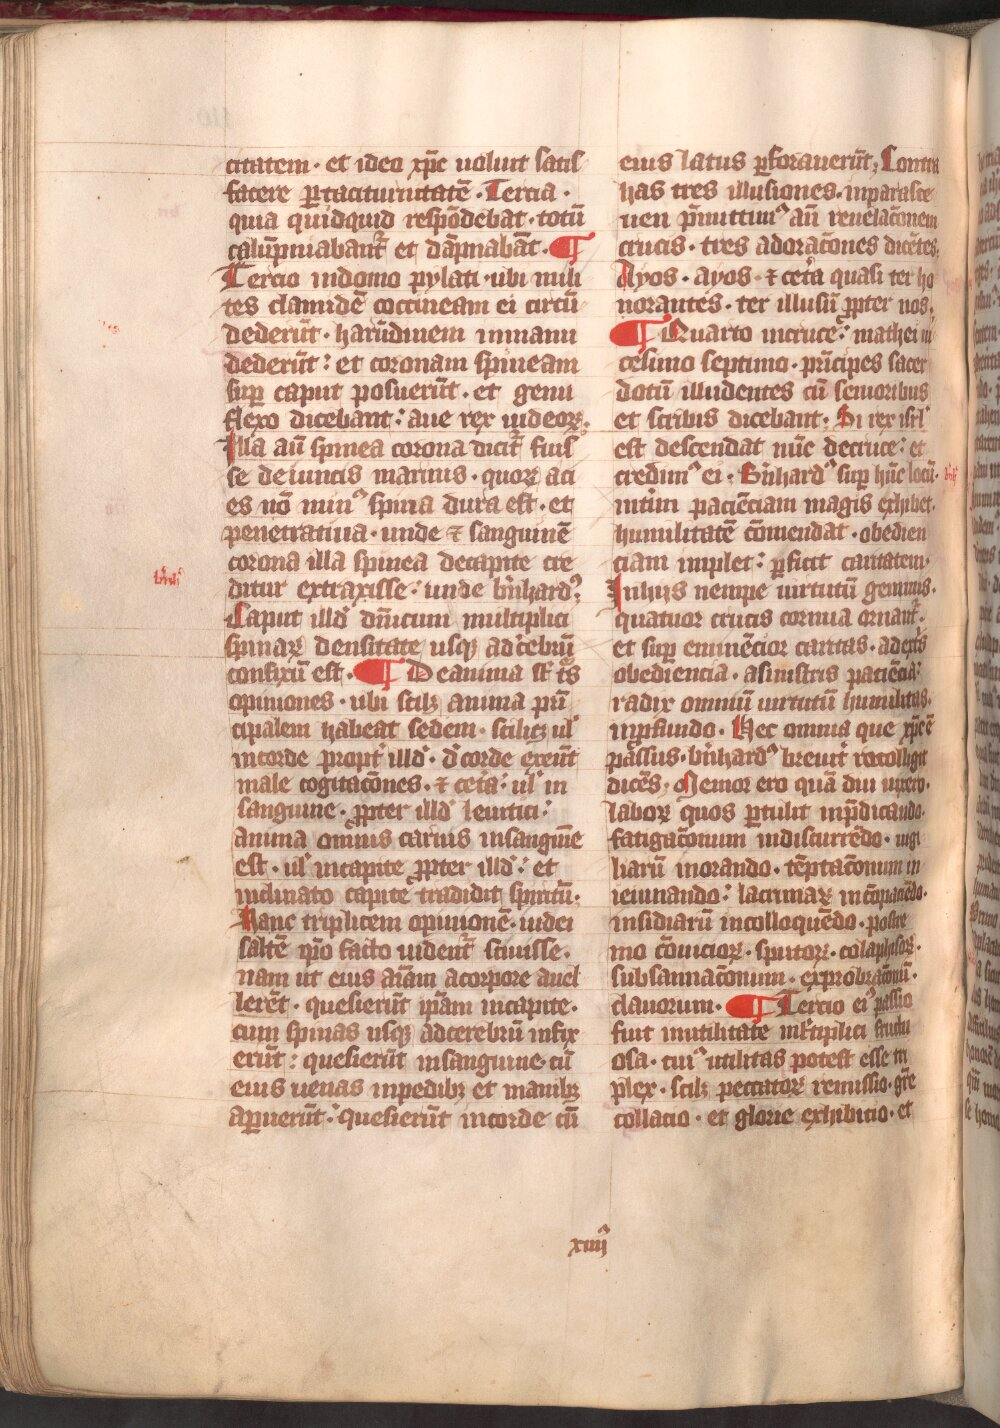 citatem · et ideo xp̄c uoluit satis
facere p̱ taciturnitatē · Tercia ·
quia quidquid respōdebat · totū
calūpniabant᷑ et dāpnabāt · ¶
Tercio in domo pylati · ubi mili
tes clamidē coccineam ei circū
dederūt · harūdinem in manu
dederūt : et coronam spineam
sup̱ caput posuerūt · et genu
flexo dicebant : aue rex iudeoꝝ ·
Illa aū spinea corona dicit᷑ fuis
se de iuncis marinis · quoꝝ aci
es nō minꝰ spina dura est · et
penetratiua · unde ⁊ sanguinē
corona illa spinea de capite cre
ditur extraxisse : unde b̄nhardꝰ :
Caput illđ dn̄icum multiplici
spinaꝝ densitate usqꝫ ad c̄ebrū
confixū est · ¶ De anima st̄ tr̄s
opiniones · ubi scilꝫ anima prī
cipalem habeat sedem · scilicꝫ ul̓
in corde propt̓ illđ · đ corde exeūt
male cogitac̄ones · ⁊ cet̓a : ul̓ in
sanguine · ꝓpter illđ leuitici :
anima omnis carnis in sanguīe
est · ul̓ in capite ꝓpter illđ : et
inclinato capite tradidit spiritū ·
Hanc triplicem opinionē · iudei
saltē ip̄o facto uident᷑ sciuisse ·
nam ut eius aīam a corpore auel
lerēt · quesierūt ip̄am in capite ·
cum spinas usqꝫ ad cerebrū infix
erūt : quesierūt in sanguine · cū
eius uenas in pedibꝫ et manibꝫ
ap̱uerūt : quesierūt in corde cū
eius latus p̱forauerūt ; Contra
has tres illusiones · in parasce
uen p̄mittimꝰ aū reuelac̄onem
crucis · tres adorac̄ones dicētes ·
Ayos · ayos · ⁊ cet̓a quasi ter ho
norantes · ter illusū ꝓpter nos ·
¶ Quarto in cruce : mathei ui
cesimo septimo · prīcipes sacer
dotū illudentes cū senioribus
et scribis dicebant · Si rex isrl̓
est descendat nūc de cruce : et
credimꝰ ei · B̄nhardꝰ sup̱ hūc locū ·
int̓im pacienciam magis exhibet ·
humilitatē cōmendat · obedien
ciam implet : p̱ficit caritatem ·
In hijs nempe uirtutū gemmis ·
quatuor crucis cornua ornant᷑ ·
et sup̱ eminēcior caritas · a dext̓s
obediencia · a sinistris paciēcia :
radix omniū uirtutū humilitas ·
in ꝓfundo · Hec omnia que xp̄c ē
passus · b̄nhardꝰ breuit̓ recolligit
dicēs · Memor ero quā diu uixero ·
laboꝝ quos p̱tulit in p̄dicando ·
fatigac̄onum in discurrēdo · uigi
liarū in orando · tēptac̄onum in
ieiunando : lacrimaꝝ in cōpaciēdo ·
insidiarū in colloquēdo · postre
mo cōuicioꝝ · sputoꝝ · colaphisoꝝ ·
subsannac̄onum · exprobrac̄onū ·
clauorum · ¶ Tercio ei passio
fuit in utilitate ml̓tiplici fructu
osa · cuiꝰ utilitas potest esse tri
plex · scilꝫ peccatoꝝ remissio · gr̄e
collacio · et glorie exhibicio · et
xiiij